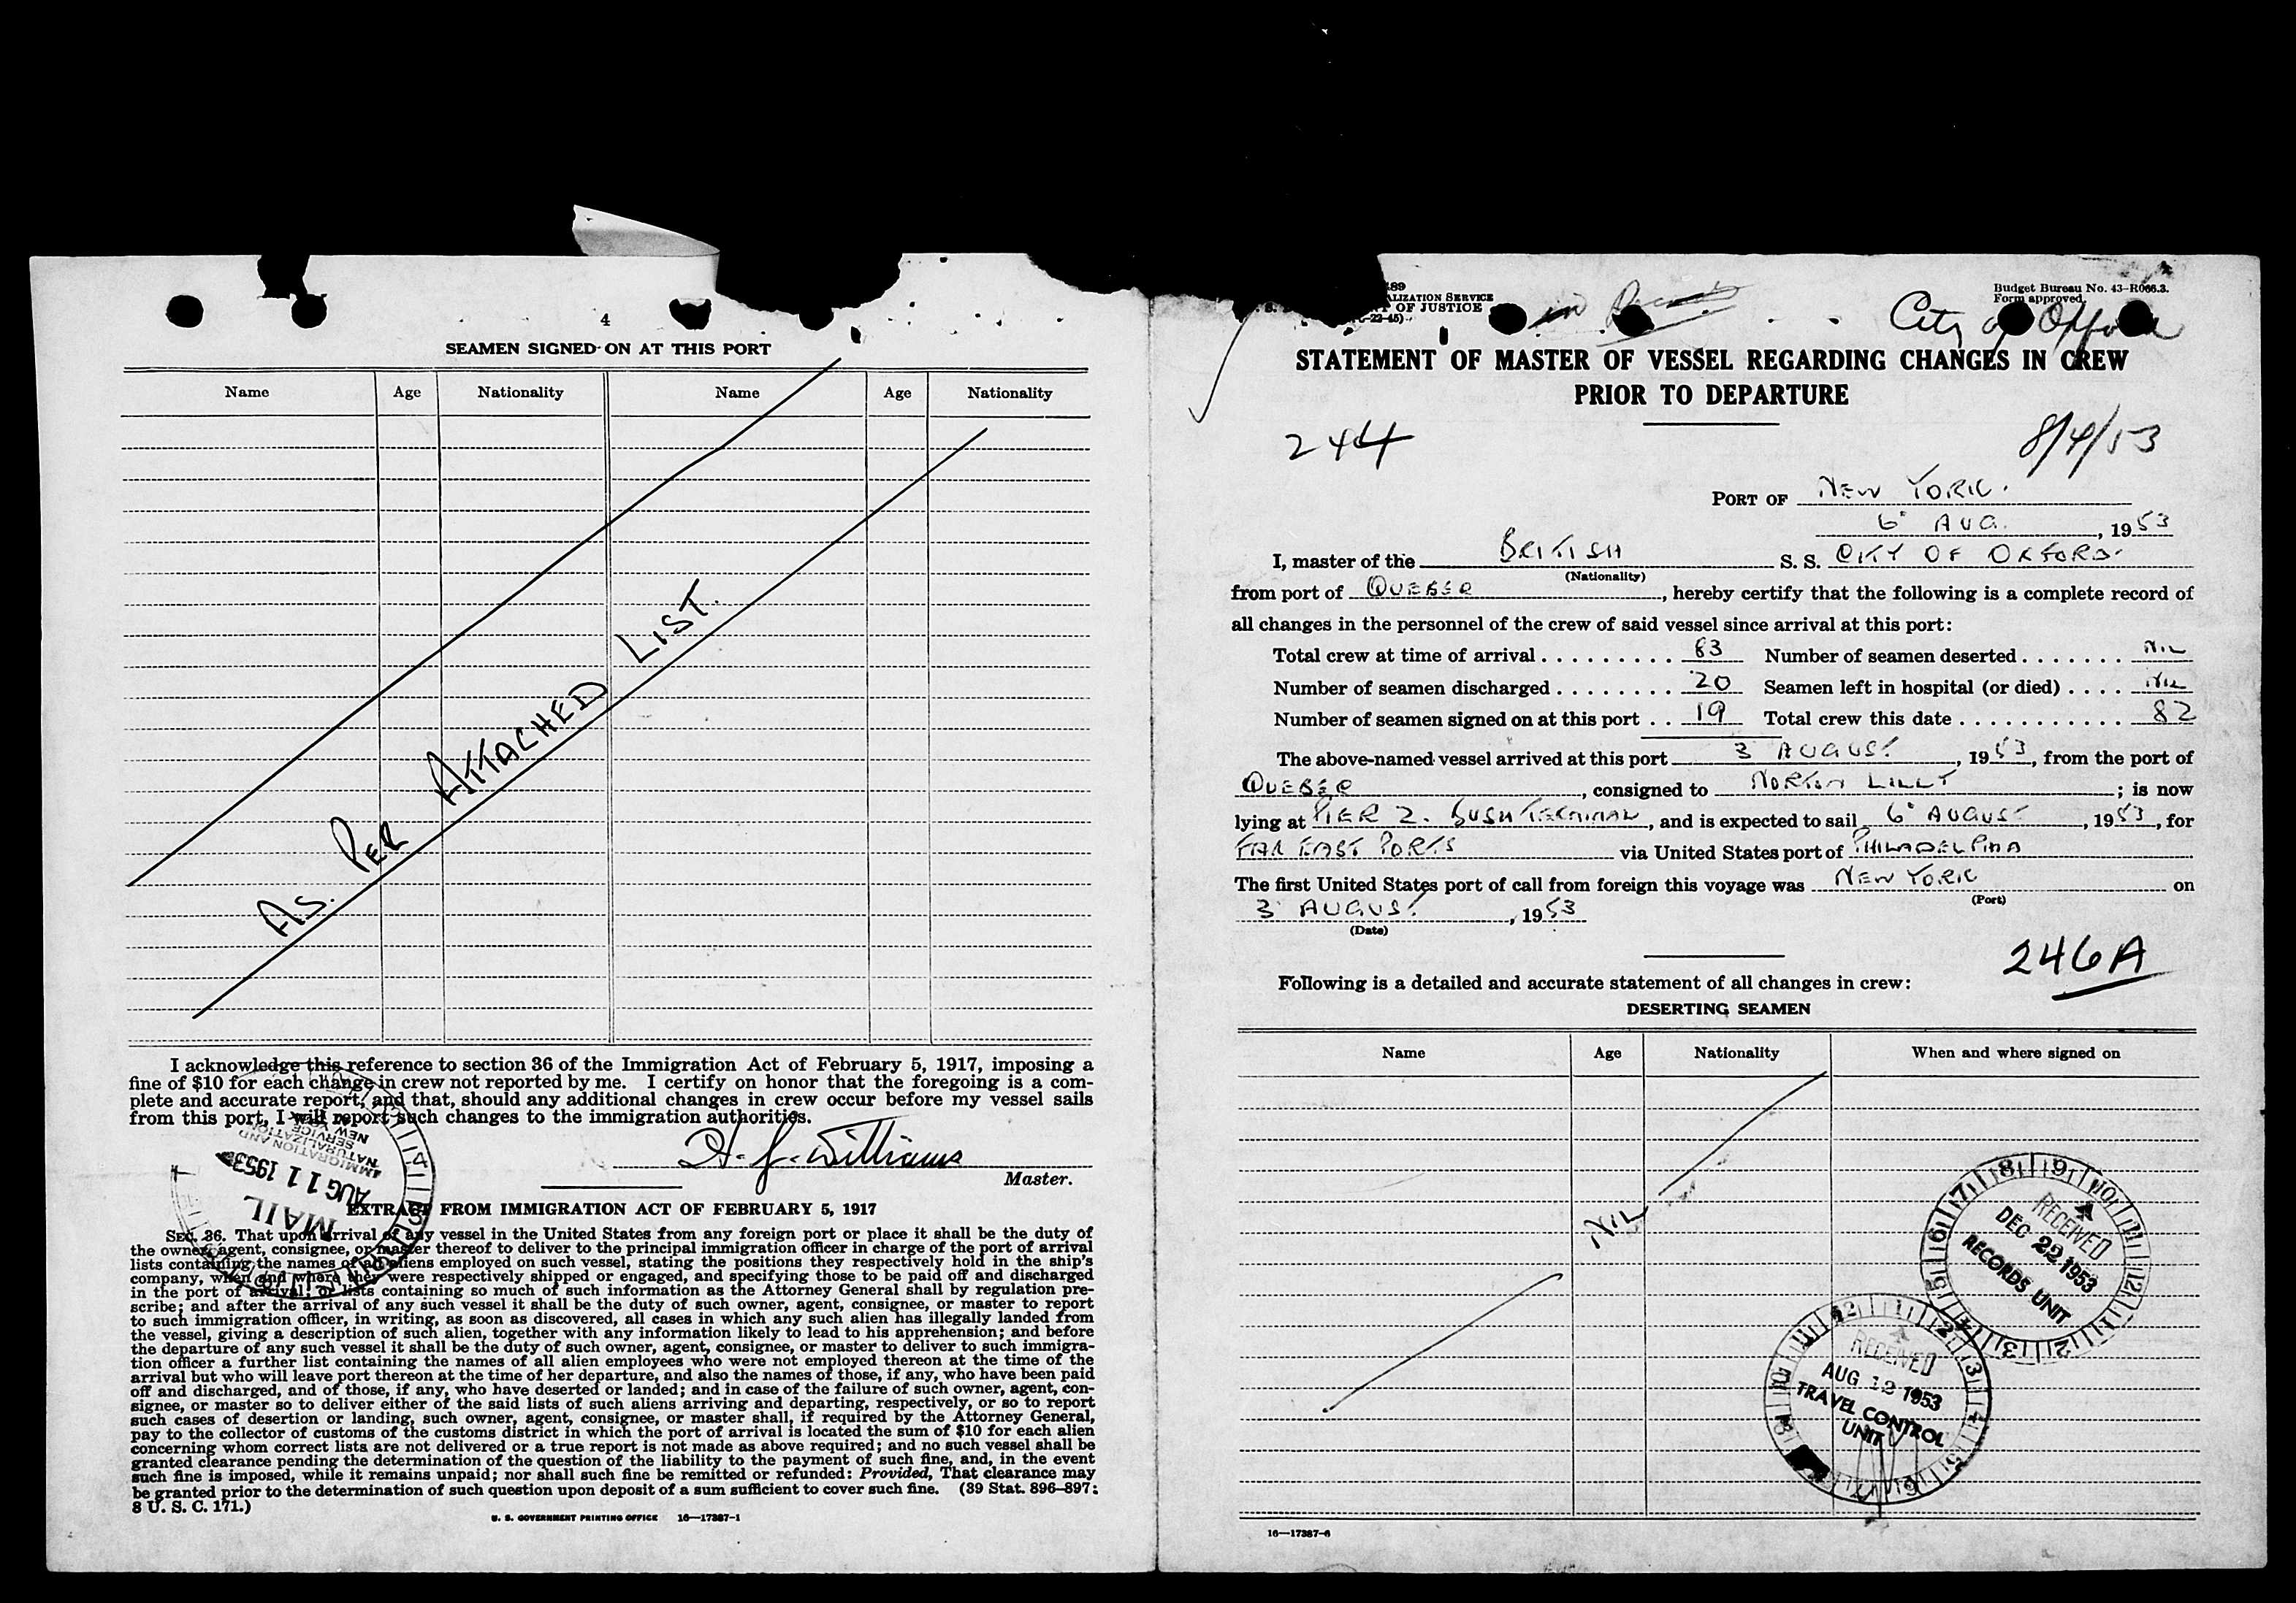 4
SEAMEN SIGNED ON AT THIS PORT
Name Age Nationality Name Age Nationality
AS. PER ATTACHED LIST.
I acknowledge this reference to section 36 of the Immigration Act of February 5, 1917, imposing a
fine of $10 for each change in crew not reported by me. I certify on honor that the foregoing is a com-
plete and accurate report, and that, should any additional changes in crew occur before my vessel sails
from this port, I will report such changes to the immigration authorities.
H. J. Williams
Master.
IMMIGRATION AND
NATURALIZATION
SERVICE
NEW YORK
AUG 11 1953
MAIL
EXTRACT FROM IMMIGRATION ACT OF FEBRUARY 5, 1917
SEC. 36. That upon arrival of any vessel in the United States from any foreign port or place it shall be the duty of
the owner, agent, consignee, or master thereof to deliver to the principal immigration officer in charge of the port of arrival
lists containing the names of all aliens employed on such vessel, stating the positions they respectively hold in the ship's
company, when and where they were respectively shipped or engaged, and specifying those to be paid off and discharged
in the port of arrival; or lists containing so much of such information as the Attorney General shall by regulation pre-
scribe; and after the arrival of any such vessel it shall be the duty of such owner, agent, consignee, or master to report
to such immigration officer, in writing, as soon as discovered, all cases in which any such alien has illegally landed from
the vessel, giving a description of such alien, together with any information likely to lead to his apprehension; and before
the departure of any such vessel it shall be the duty of such owner, agent, consignee, or master to deliver to such immigra-
tion officer a further list containing the names of all alien employees who were not employed thereon at the time of the
arrival but who will leave port thereon at the time of her departure, and also the names of those, if any, who have been paid
off and discharged, and of those, if any, who have deserted or landed; and in case of the failure of such owner, agent, con-
signee, or master so to deliver either of the said lists of such aliens arriving and departing, respectively, or so to report
such cases of desertion or landing, such owner, agent, consignee, or master shall, if required by the Attorney General,
pay to the collector of customs of the customs district in which the port of arrival is located the sum of $10 for each alien
concerning whom correct lists are not delivered or a true report is not made as above required; and no such vessel shall be
granted clearance pending the determination of the question of the liability to the payment of such fine, and, in the event
such fine is imposed, while it remains unpaid; nor shall such fine be remitted or refunded: Provided, That clearance may
be granted prior to the determination of such question upon deposit of a sum sufficient to cover such fine. (39 Stat. 896-897;
8 U. S. C. 171.)
U. S. GOVERNMENT PRINTING OFFICE 16—17387-1
489
ALIZATION SERVICE
OF JUSTICE
-22-45)
in
Budget Bureau No. 43-R066.3.
Form approved.
City of Oxford
STATEMENT OF MASTER OF VESSEL REGARDING CHANGES IN CREW
PRIOR TO DEPARTURE
244
8/4/53
PORT OF NEW YORK.
6° AUG., 1953
I, master of the BRITISH S. S. CITY OF OXFORD.
(Nationality)
from port of QUEBEC, hereby certify that the following is a complete record of
all changes in the personnel of the crew of said vessel since arrival at this port:
Total crew at time of arrival . . . . . . . . . 83 Number of seamen deserted . . . . . . . NIL
Number of seamen discharged . . . . . . . . 20 Seamen left in hospital (or died) . . . . NIL
Number of seamen signed on at this port . . 19 Total crew this date . . . . . . . . . . . . 82
The above-named vessel arrived at this port 3 AUGUST, 1953, from the port of
QUEBEC, consigned to NORTON LILLY; is now
lying at PIER 2. BUSH TERMINAL, and is expected to sail 6° AUGUST, 1953, for
FAR EAST PORTS via United States port of PHILADELPHIA
The first United States port of call from foreign this voyage was NEW YORK on
(Port)
3 AUGUST, 1953
(Date)
246A
Following is a detailed and accurate statement of all changes in crew:
DESERTING SEAMEN
Name Age Nationality When and where signed on
NIL
RECEIVED
DEC 22 1953
RECORDS UNIT
RECEIVED
AUG 12 1953
TRAVEL CONTROL
UNIT
16—17387-6